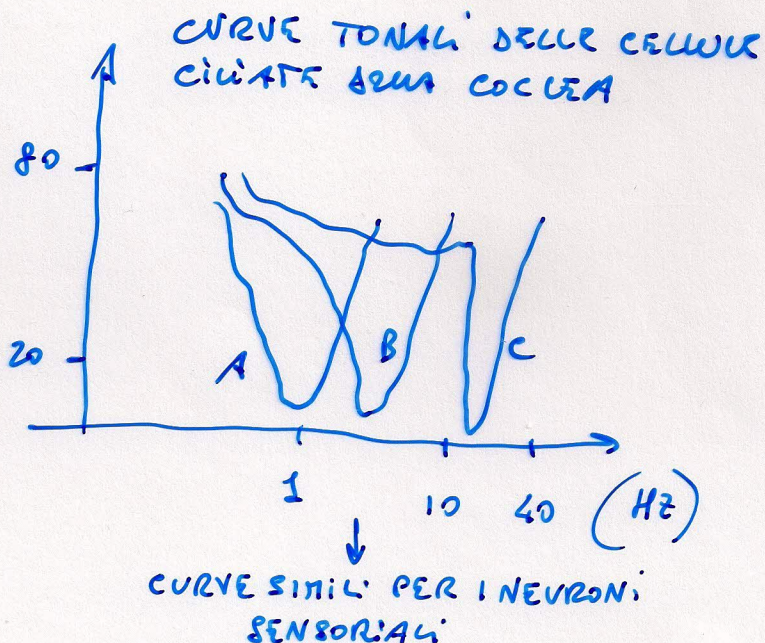 CURVE TONALI DELLE CELLULE
CILIATE DELLA COCLEA
80
20
A
B
C
1
10
40
(HZ)
CURVE SIMILI PER I NEURONI
SENSORIALI